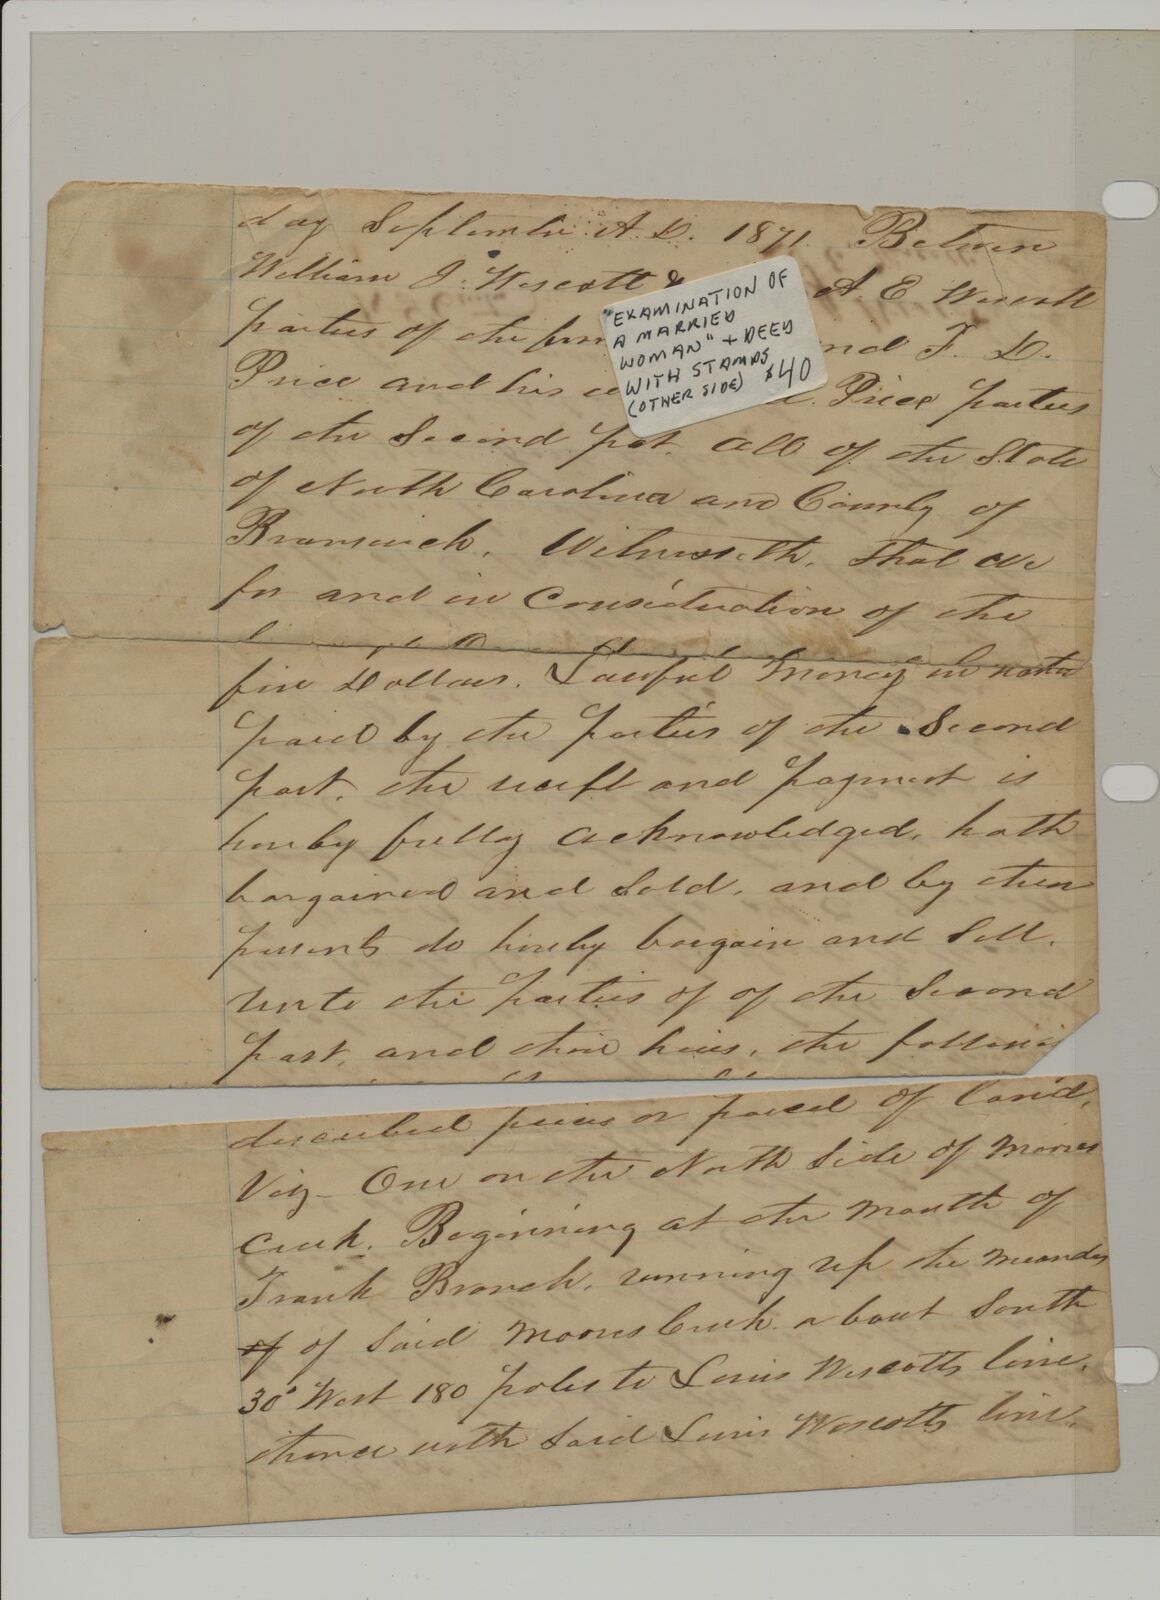 day September A.D. 1871. Between
William J. Wescott & A. E. Wescott
parties of the and F. D.
Price and his Price parties
of the Second part. all of the State
of North Carolina and County of
Brunswick. Witnesseth. That we
for and in Consideration of the
five Dollars. Lawful Money in
paid by the parties of the Second
part. the receipt and payment is
hereby fully acknowledged, hath
bargained and Sold. and by these
presents do hereby bargain and Sell.
unto the parties of of the Second
part. and their heirs. the
described pieces or parcel of Land,
Viz - One on the North Side of Moores
Creek. Beginning at the Mouth of
Frank Branch. running up the
of of Said Moores Creek a bout South
30° West 180 poles to Louis Wescotts line.
thence with Said Louis Wescotts line.
"EXAMINATION OF
A MARRIED
WOMAN" + DEED
WITH STAMPS
(OTHER SIDE) $40